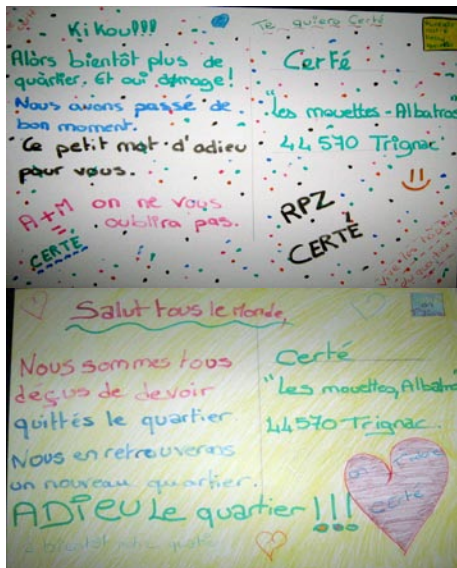 Kikou!!!
Alors bientôt plus de
quartier. Et oui domage!
Nous avons passé de
bon moment.
Ce petit mot d'adieu
pour vous.
A+M on ne vous
oublira pas.
CERTÉ
Te quiero Certé
Certé
"Les mouettes - Albatros
44570 Trignac
RPZ
CERTÉ
Salut tous le Monde,
Nous sommes tous
déçus de devoir
quittés le quartier.
Nous en retrouverons
un nouveau quartier.
ADIEU Le quartier!!!
à bientôt
Certé
"Les mouettes, Albatros
44570 Trignac.
Certé